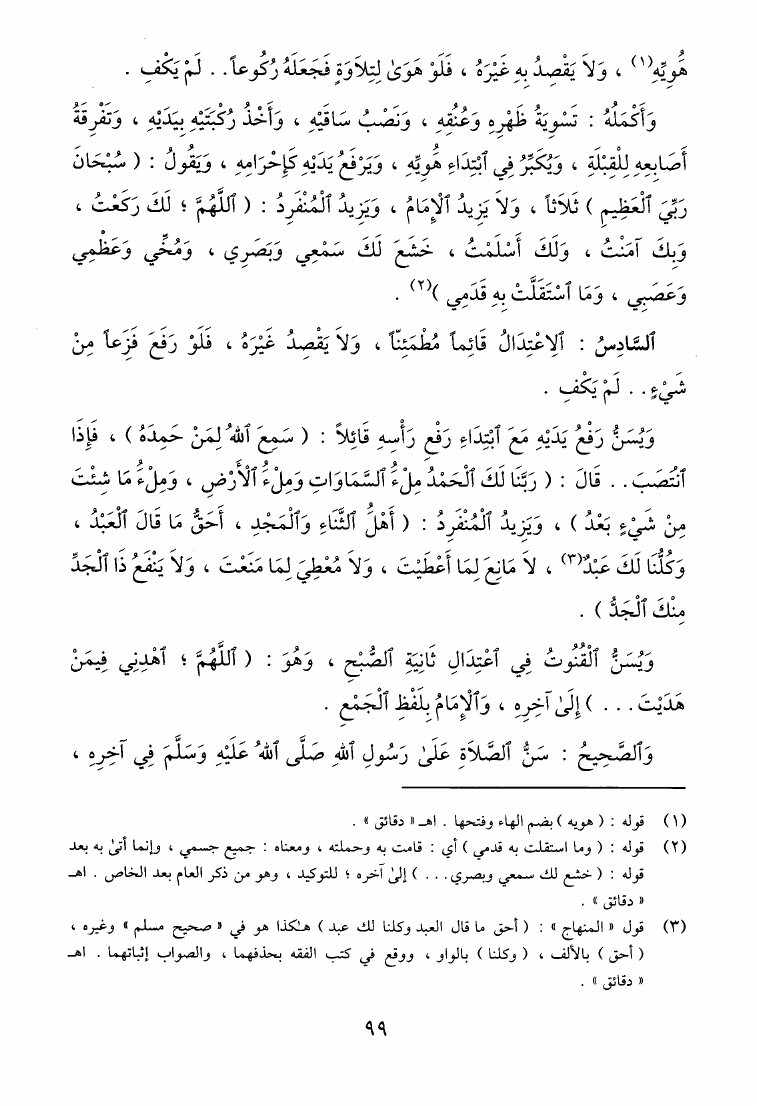 هُوِيِّهِ(١) ، وَلاَ يَقْصِدُ بِهِ غَيْرَهُ ، فَلَوْ هَوَىٰ لِتِلاَوَةٍ فَجَعَلَهُ رُكُوعاً . . لَمْ يَكْفِ .
وَأَكْمَلُهُ : تَسْوِيَةُ ظَهْرِهِ وَعُنُقِهِ ، وَنَصْبُ سَاقَيْهِ ، وَأَخْذُ رُكْبَتَيْهِ بِيَدَيْهِ ، وَتَفْرِقَةُ
أَصَابِعِهِ لِلْقِبْلَةِ ، وَيُكَبِّرُ فِي ٱبْتِدَاءِ هُوِيِّهِ ، وَيَرْفَعُ يَدَيْهِ كَإِحْرَامِهِ ، وَيَقُولُ : ( سُبْحَانَ
رَبِّيَ ٱلْعَظِيمِ ) ثَلاَثاً ، وَلاَ يَزِيدُ ٱلإِمَامُ ، وَيَزِيدُ ٱلْمُنْفَرِدُ : ( ٱللَّهُمَّ ؛ لَكَ رَكَعْتُ ،
وَبِكَ آمَنْتُ ، وَلَكَ أَسْلَمْتُ ، خَشَعَ لَكَ سَمْعِي وَبَصَرِي ، وَمُخِّي وَعَظْمِي
وَعَصَبِي ، وَمَا ٱسْتَقَلَّتْ بِهِ قَدَمِي )(٢) .
ٱلسَّادِسُ : ٱلِاعْتِدَالُ قَائِماً مُطْمَئِنّاً ، وَلاَ يَقْصِدُ غَيْرَهُ ، فَلَوْ رَفَعَ فَزَعاً مِنْ
شَيْءٍ . . لَمْ يَكْفِ .
وَيُسَنُّ رَفْعُ يَدَيْهِ مَعَ ٱبْتِدَاءِ رَفْعِ رَأْسِهِ قَائِلاً : ( سَمِعَ ٱللهُ لِمَنْ حَمِدَهُ ) ، فَإِذَا
ٱنْتَصَبَ . . قَالَ : ( رَبَّنَا لَكَ ٱلْحَمْدُ مِلْءُ ٱلسَّمَاوَاتِ وَمِلْءُ ٱلأَرْضِ ، وَمِلْءُ مَا شِئْتَ
مِنْ شَيْءٍ بَعْدُ ) ، وَيَزِيدُ ٱلْمُنْفَرِدُ : ( أَهْلَ ٱلثَّنَاءِ وَٱلْمَجْدِ ، أَحَقُّ مَا قَالَ ٱلْعَبْدُ ،
وَكُلُّنَا لَكَ عَبْدٌ(٣) ، لاَ مَانِعَ لِمَا أَعْطَيْتَ ، وَلاَ مُعْطِيَ لِمَا مَنَعْتَ ، وَلاَ يَنْفَعُ ذَا ٱلْجَدِّ
مِنْكَ ٱلْجَدُّ ) .
وَيُسَنُّ ٱلْقُنُوتُ فِي ٱعْتِدَالِ ثَانِيَةِ ٱلصُّبْحِ ، وَهُوَ : ( ٱللَّهُمَّ ؛ ٱهْدِنِي فِيمَنْ
هَدَيْتَ . . . ) إِلَىٰ آخِرِهِ ، وَٱلإِمَامُ بِلَفْظِ ٱلْجَمْعِ .
وَٱلصَّحِيحُ : سَنُّ ٱلصَّلاَةِ عَلَىٰ رَسُولِ ٱللهِ صَلَّى ٱللهُ عَلَيْهِ وَسَلَّمَ فِي آخِرِهِ ،
(١) قوله : ( هويه ) بضم الهاء وفتحها . اهـ « دقائق » .
(٢) قوله : ( وما استقلت به قدمي ) أي : قامت به وحملته ، ومعناه : جميع جسمي ، وإنما أتىٰ به بعد
قوله : ( خشع لك سمعي وبصري . . . ) إلىٰ آخره ؛ للتوكيد ، وهو من ذكر العام بعد الخاص . اهـ
« دقائق » .
(٣) قول « المنهاج » : ( أحق ما قال العبد وكلنا لك عبد ) هـٰكذا هو في « صحيح مسلم » وغيره ،
( أحق ) بالألف ، ( وكلنا ) بالواو ، ووقع في كتب الفقه بحذفهما ، والصواب إثباتهما . اهـ
« دقائق » .
٩٩